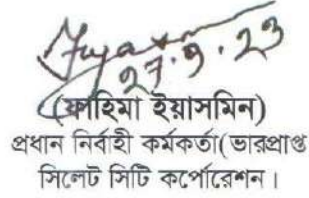 27.9.23
(ফাহিমা ইয়াসমিন)
প্রধান নির্বাহী কর্মকর্তা(ভারপ্রাপ্ত
সিলেট সিটি কর্পোরেশন।